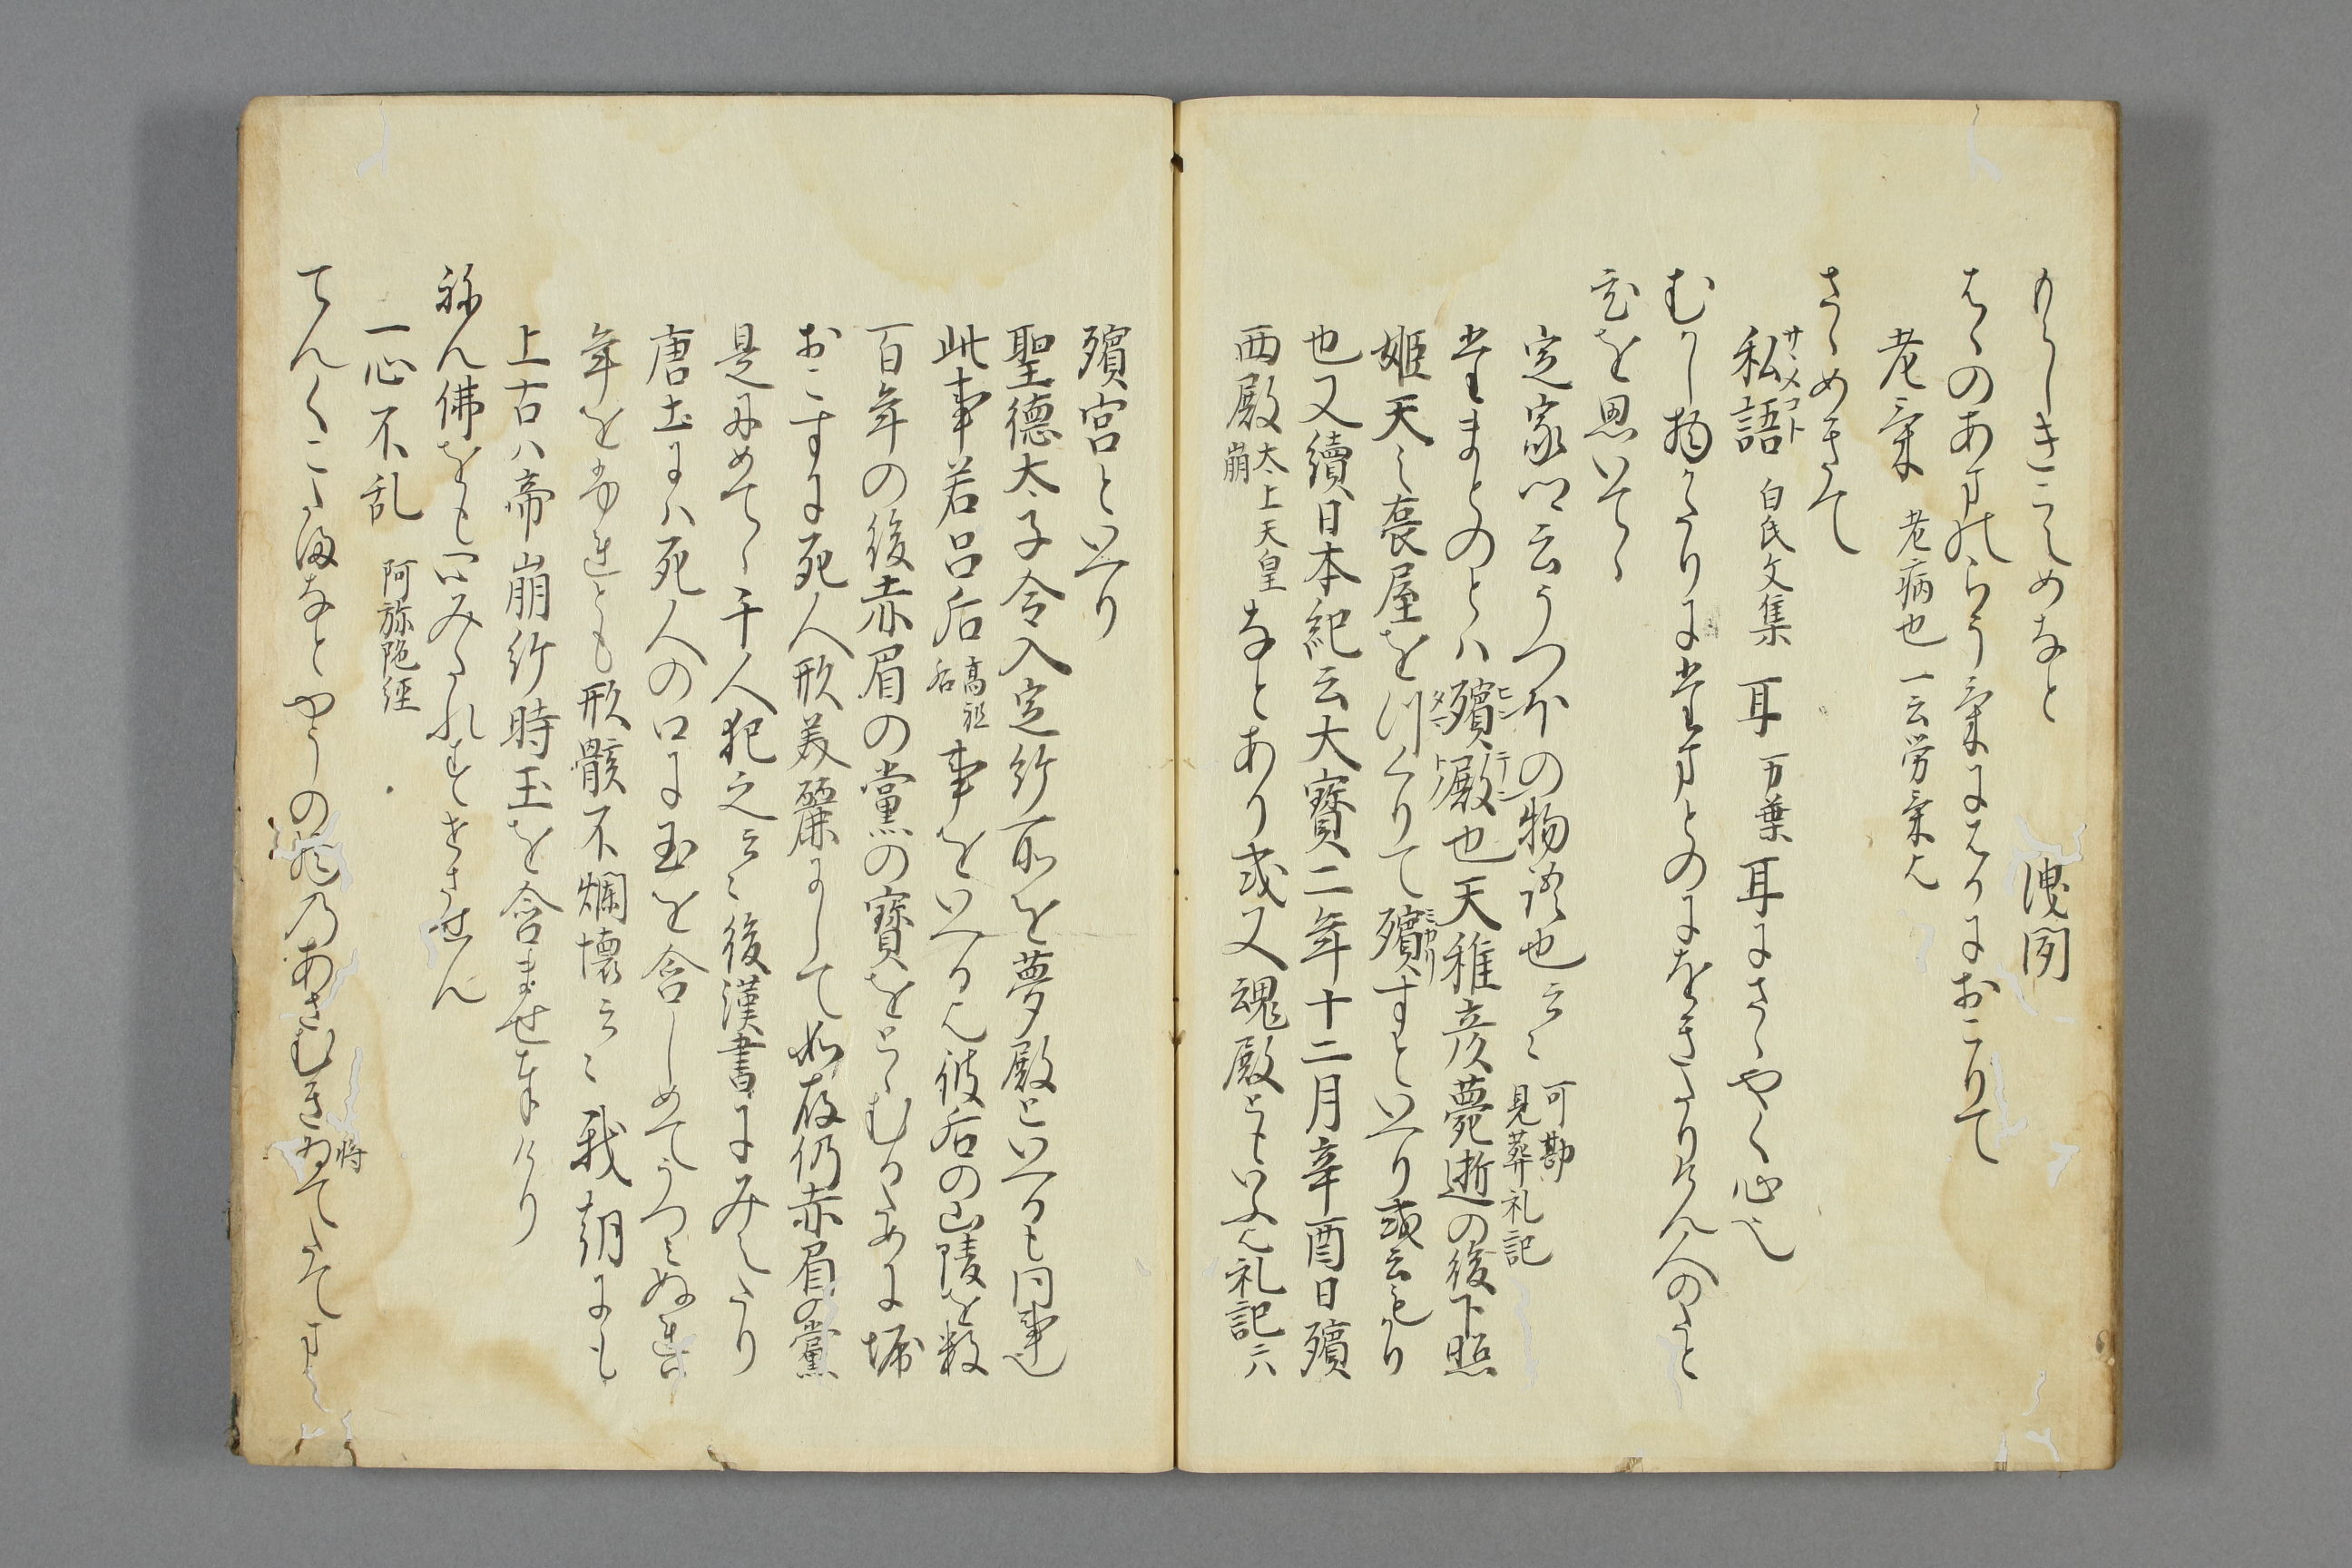 もらしきこしめなと 洩聞
はゝのあまのらう氣にはかにおこりて
老氣 老病也 一云労氣也
さゝめきて
私語 サヽメコト 白氏文集 耳 万葉 耳にさゝやく心也
むかし物かたりにたまとのにをきたりけん人のたと
ひを思いてゝ
定家卿云うつほの物語也云々 可勘 見葬礼記
たまとのとハ殯殿也天稚彦薨逝の後下照
姫天に喪屋をつくりて殯すといへり或云もかり
也又續日本紀云大寶二年十二月辛酉日殯
西殿 太上天皇崩 なとあり或又魂殿ともいふ也礼記ニハ
殯宮といへり
聖德太子令入定給所を夢殿といへるも同事也
此事若呂后 高祖后 事をいへる也彼后の山陵を数
百年の後赤眉の黨の寶をとらむかために堀
おこすに死人形美麗にして如存仍赤眉の黨
是にめてゝ千人犯之云々後漢書にみえたり
唐土にハ死人の口に玉を含しめてうつみぬれは
年をふれとも形骸不爛壞云々我朝にも
上古ハ帝崩給時玉を含ませ奉けり
ねん佛をも心みたれすせさせん
一心不乱 阿弥陀経
てんくこたまなとやうの物のあさむきゐて 将 たてま